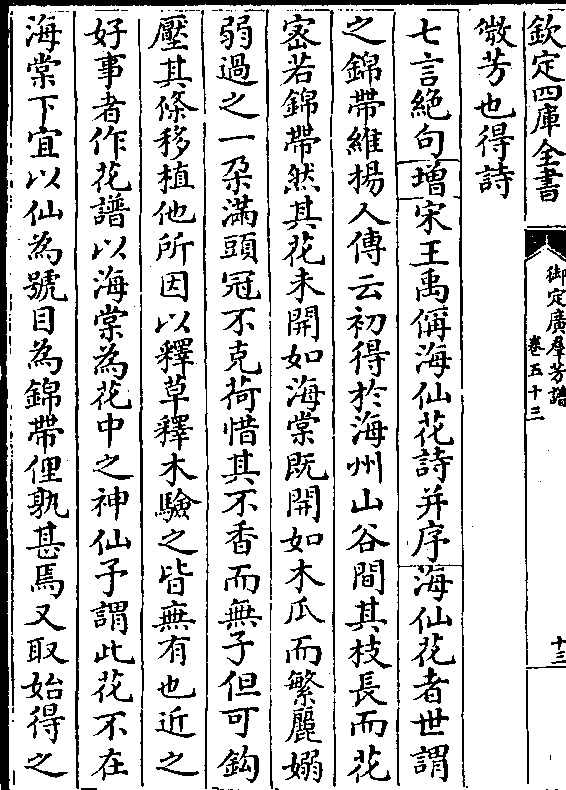 欽定四庫全書
御定廣羣芳譜
卷五十三
十三
微芳也得詩
七言絶句增宋王禹偁海仙花詩并序海仙花者世謂
之錦帶維揚人傳云初得於海州山谷間其枝長而花
宻若錦帶然其花未開如海棠既開如木瓜而繁麗嫋
弱過之一朶滿頭冠不克荷惜其不香而無子但可鈎
壓其條移植他所因以釋草釋木驗之皆無有也近之
好事者作花譜以海棠為花中之神仙予謂此花不在
海棠下宜以仙為號目為錦帶俚孰甚焉又取始得之